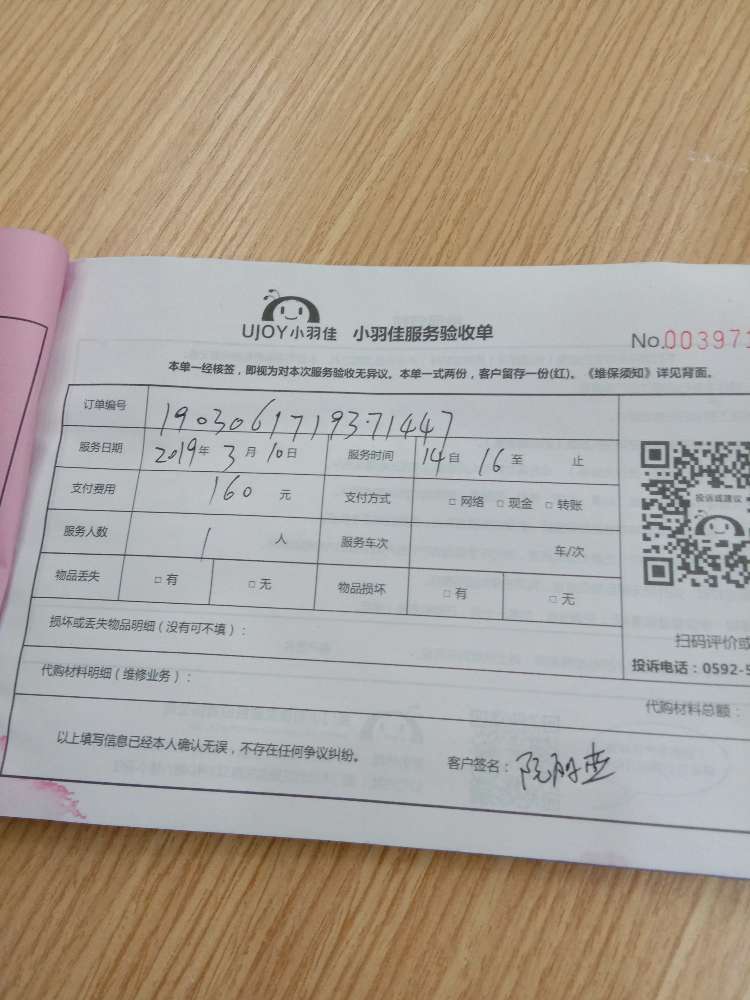 UJOY小羽佳 小羽佳服务验收单
No.003971
本单一经核签，即视为对本次服务验收无异议。本单一式两份，客户留存一份(红)。《维保须知》详见背面。
订单编号 1903061719371447
服务日期 2019年 3月 10日 服务时间 14自 16至 止
支付费用 160 元 支付方式 □网络 □现金 □转账
服务人数 1 人 服务车次 车/次
物品丢失 □有 □无 物品损坏 □有 □无
投诉或建议
扫码评价或
投诉电话：0592-5
损坏或丢失物品明细（没有可不填）：
代购材料明细（维修业务）： 代购材料总额：
以上填写信息已经本人确认无误，不存在任何争议纠纷。 客户签名：